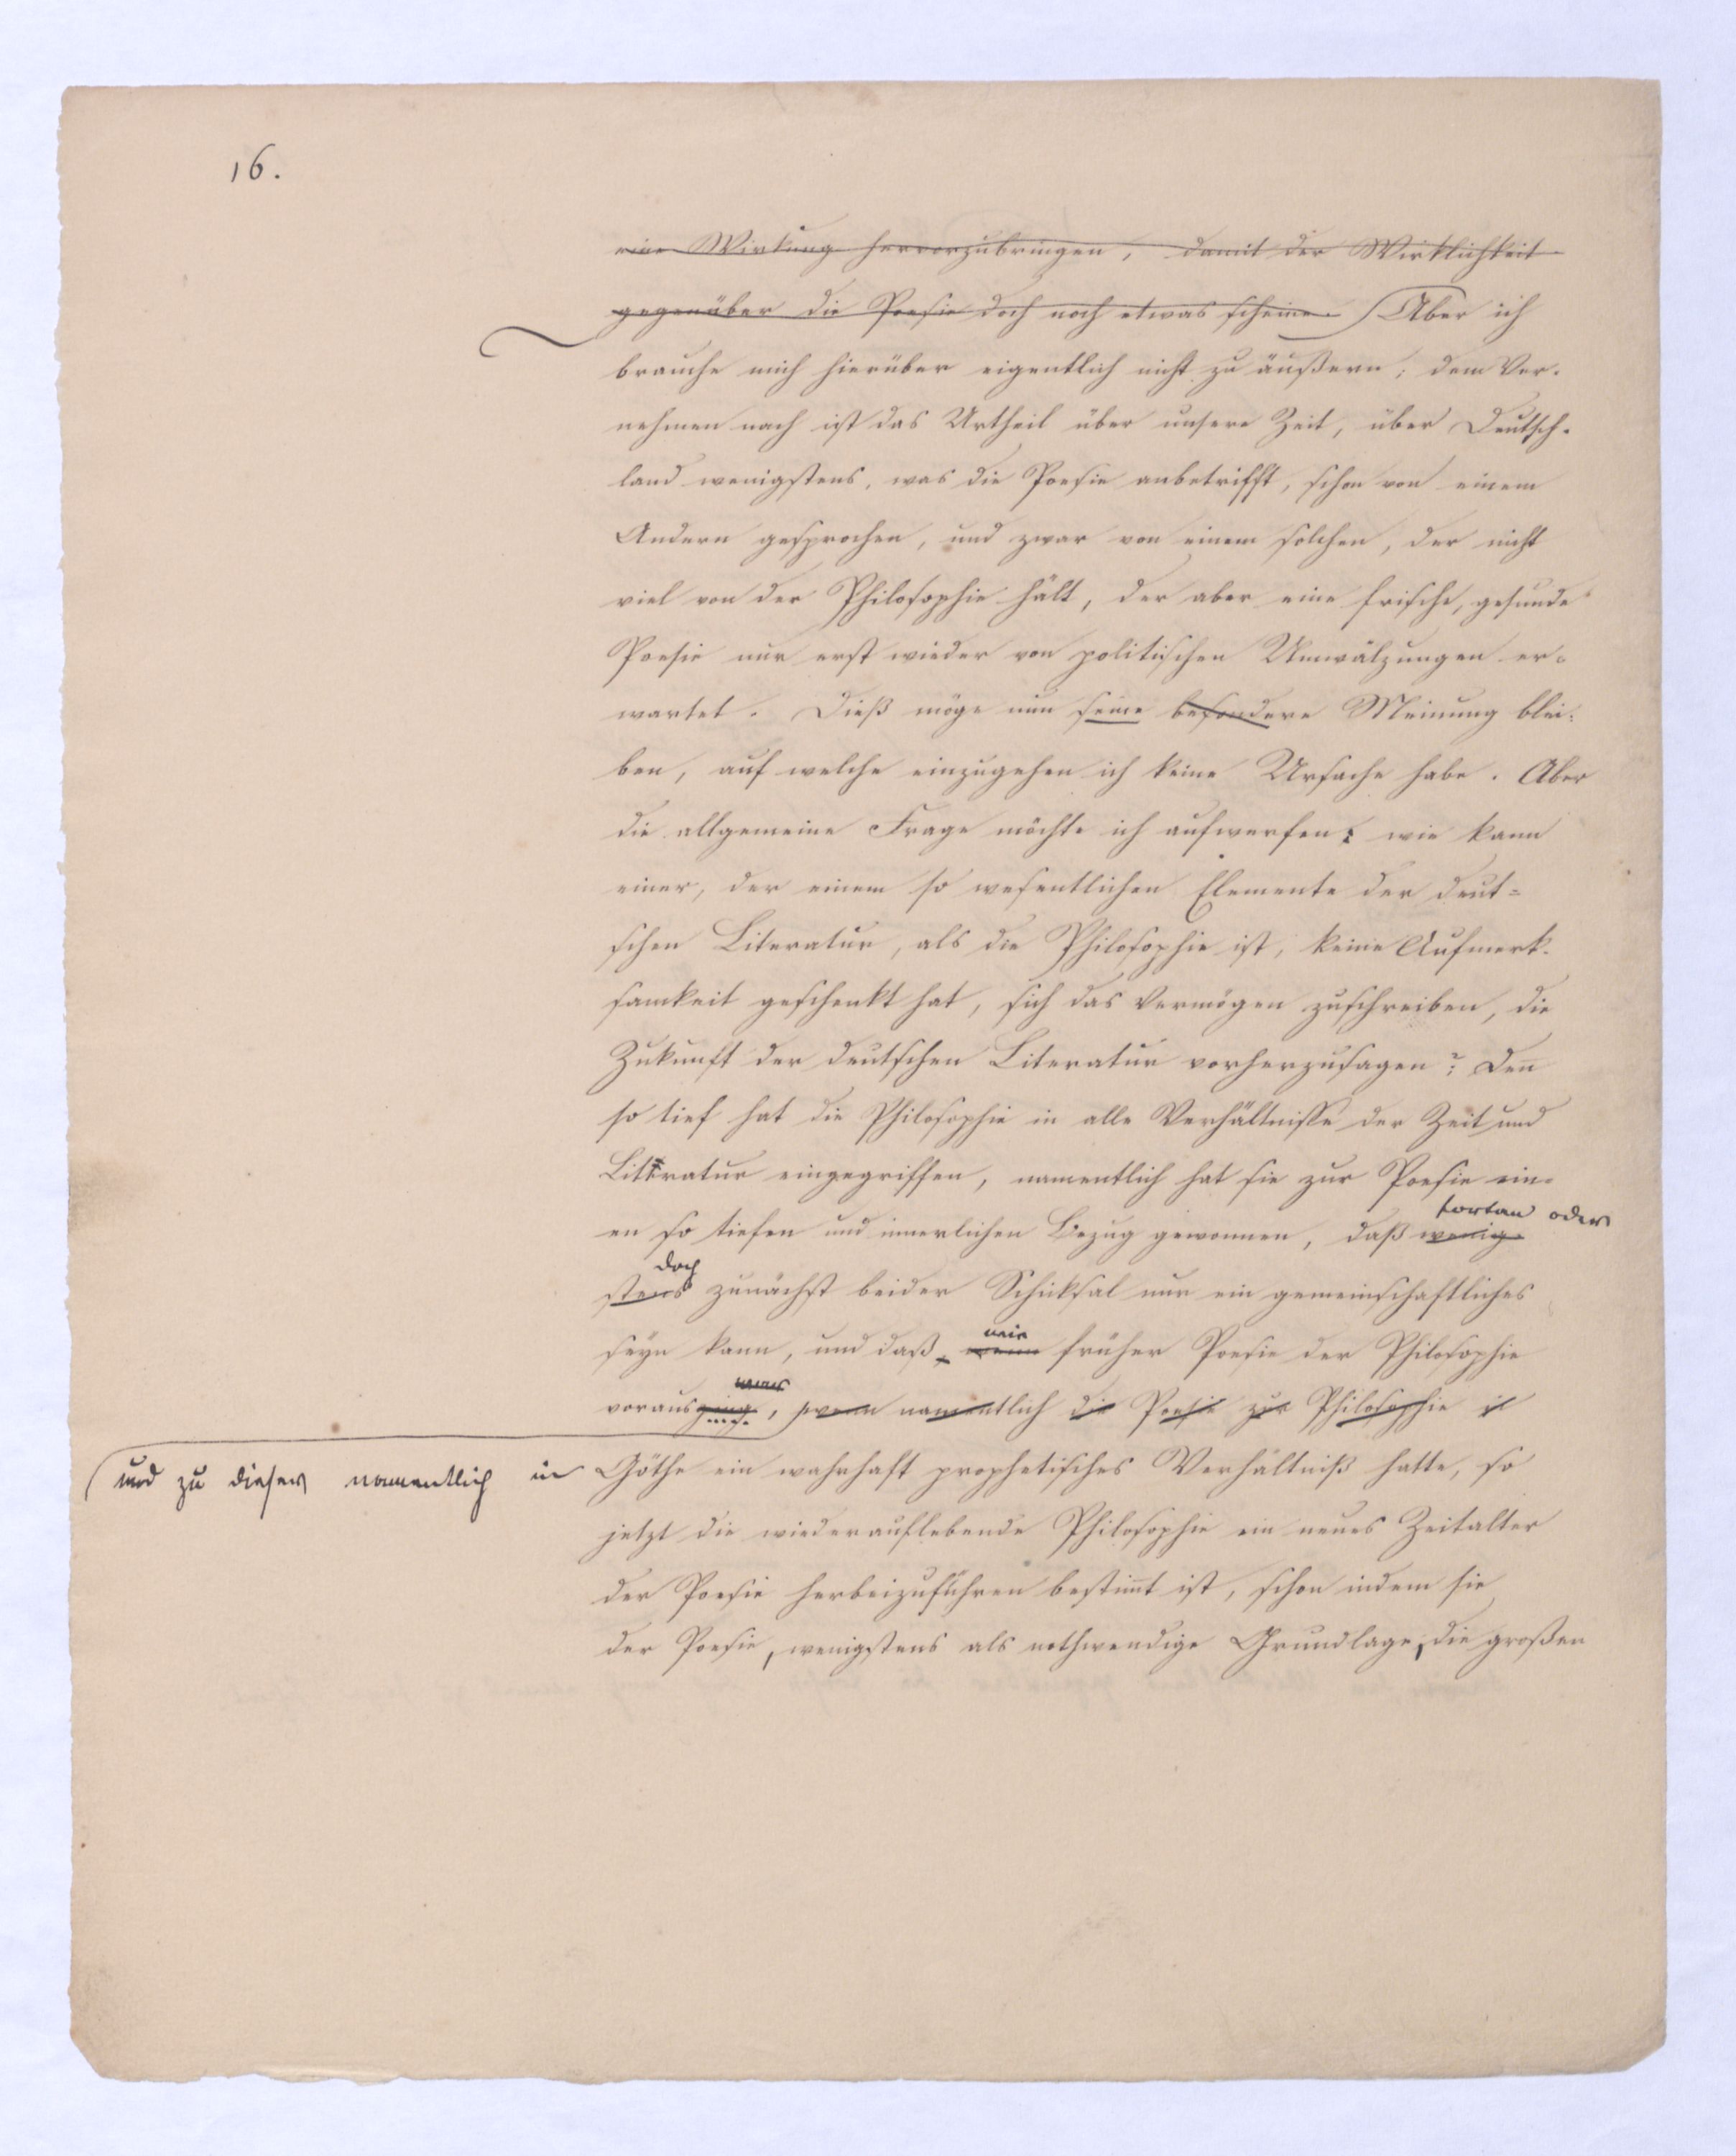 16.
eine Wirkung hervorzubringen, damit der Wirklichkeit
gegenüber die Poesie doch noch etwas scheine. Aber ich
brauche mich hierüber eigentlich nicht zu äußern; dem Ver-
nehmen nach ist das Urtheil über unsere Zeit, über Deutsch-
land wenigstens, was die Poesie anbetrifft, schon von einem
Andern gesprochen, und zwar von einem solchen, der nicht
viel von der Philosophie hält, der aber eine frische, gesunde
Poesie nur erst wieder von politischen Umwälzungen er-
wartet. Dieß möge nun seine besondere Meinung blei-
ben, auf welche einzugehen ich keine Ursache habe. Aber
die allgemeine Frage möchte ich aufwerfen: wie kann
einer, der einem so wesentlichen Elemente der deut=
schen Literatur, als die Philosophie ist, keine Aufmerk-
samkeit geschenkt hat, sich das Vermögen zuschreiben, die
Zukunft der deutschen Literatur vorherzusagen? Den̄
so tief hat die Philosophie in alle Verhältnisse der Zeit und
Literatur eingegriffen, namentlich hat sie zur Poesie ein-
fortan oder
en so tiefen und innerlichen Bezug gewonnen, daß wenig-
doch
stens zunächst beider Schicksal nur ein gemeinschaftliches
wie
seyn kann, und daß, wenn früher Poesie der Philosophie
vorausging, wenn namentlich die Poesie zur Philosophie in
und zu dieser namentlich in Göthe ein wahrhaft prophetisches Verhältniß hatte, so
jetzt die wiederauflebende Philosophie ein neues Zeitalter
der Poesie herbeizuführen bestim̄t ist, schon indem sie
der Poesie, wenigstens als nothwendige Grundlage, die großen